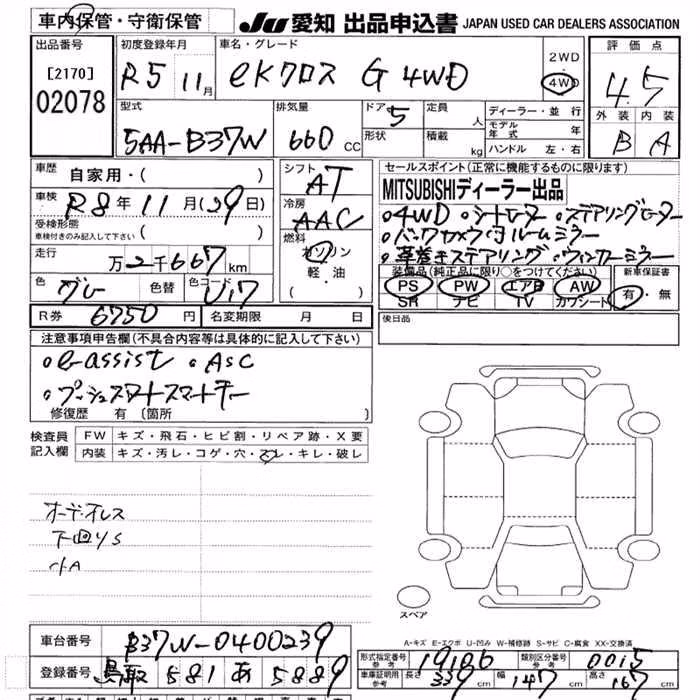 車内保管・守衛保管
JU 愛知 出品申込書 JAPAN USED CAR DEALERS ASSOCIATION
出品番号
[2170]
02078
初度登録年月
R5 11月
車名・グレード
eKクロス G 4WD
2WD
4WD
評価点
4.5
外装 内装
B A
型式
5AA-B37W
排気量
660 CC
ドア 5
形状
定員 人
積載 kg
ディーラー・並行
モデル年式 年
ハンドル 左・右
車歴 自家用・( )
車検 R8年11月(29日)
受検形態
車検付きのみ記入して下さい ( )
走行
万2千667km
色 グレー 色替 色コード U17
シフト AT
冷房 AAC
燃料
ガソリン
軽・油
( )
セールスポイント(正常に機能するものに限ります)
MITSUBISHIディーラー出品
。4WD 。シートヒーター 。ステアリングヒーター
。バックカメラ付ルームミラー
。革巻きステアリング 。ウィンカーミラー
装備品(純正品に限り○をつけてください)
PS PW エアB AW
SR ナビ TV カワシート
新車保証書
有・無
R券 6750円 名変期限 月 日
後日品
注意事項申告欄(不具合内容等は具体的に記入して下さい)
。e-assist 。ASC
。プッシュスタートスマートキー
修復歴 有 〔箇所 〕
検査員
記入欄
FW キズ・飛石・ヒビ割・リペア跡・X要
内装 キズ・汚レ・コゲ・穴・スレ・キレ・破レ
オーディオレス
下回りS
スペア
A-キズ E-エクボ U-凹み W-補修跡 S-サビ C-腐食 XX-交換済
車台番号 B37W-0400239
登録番号 鳥取 581 あ 5889
形式指定番号 参考 19106 類別区分番号 参考 0015
車庫証明用 参考 長さ 339cm 幅 147cm 高さ 167cm